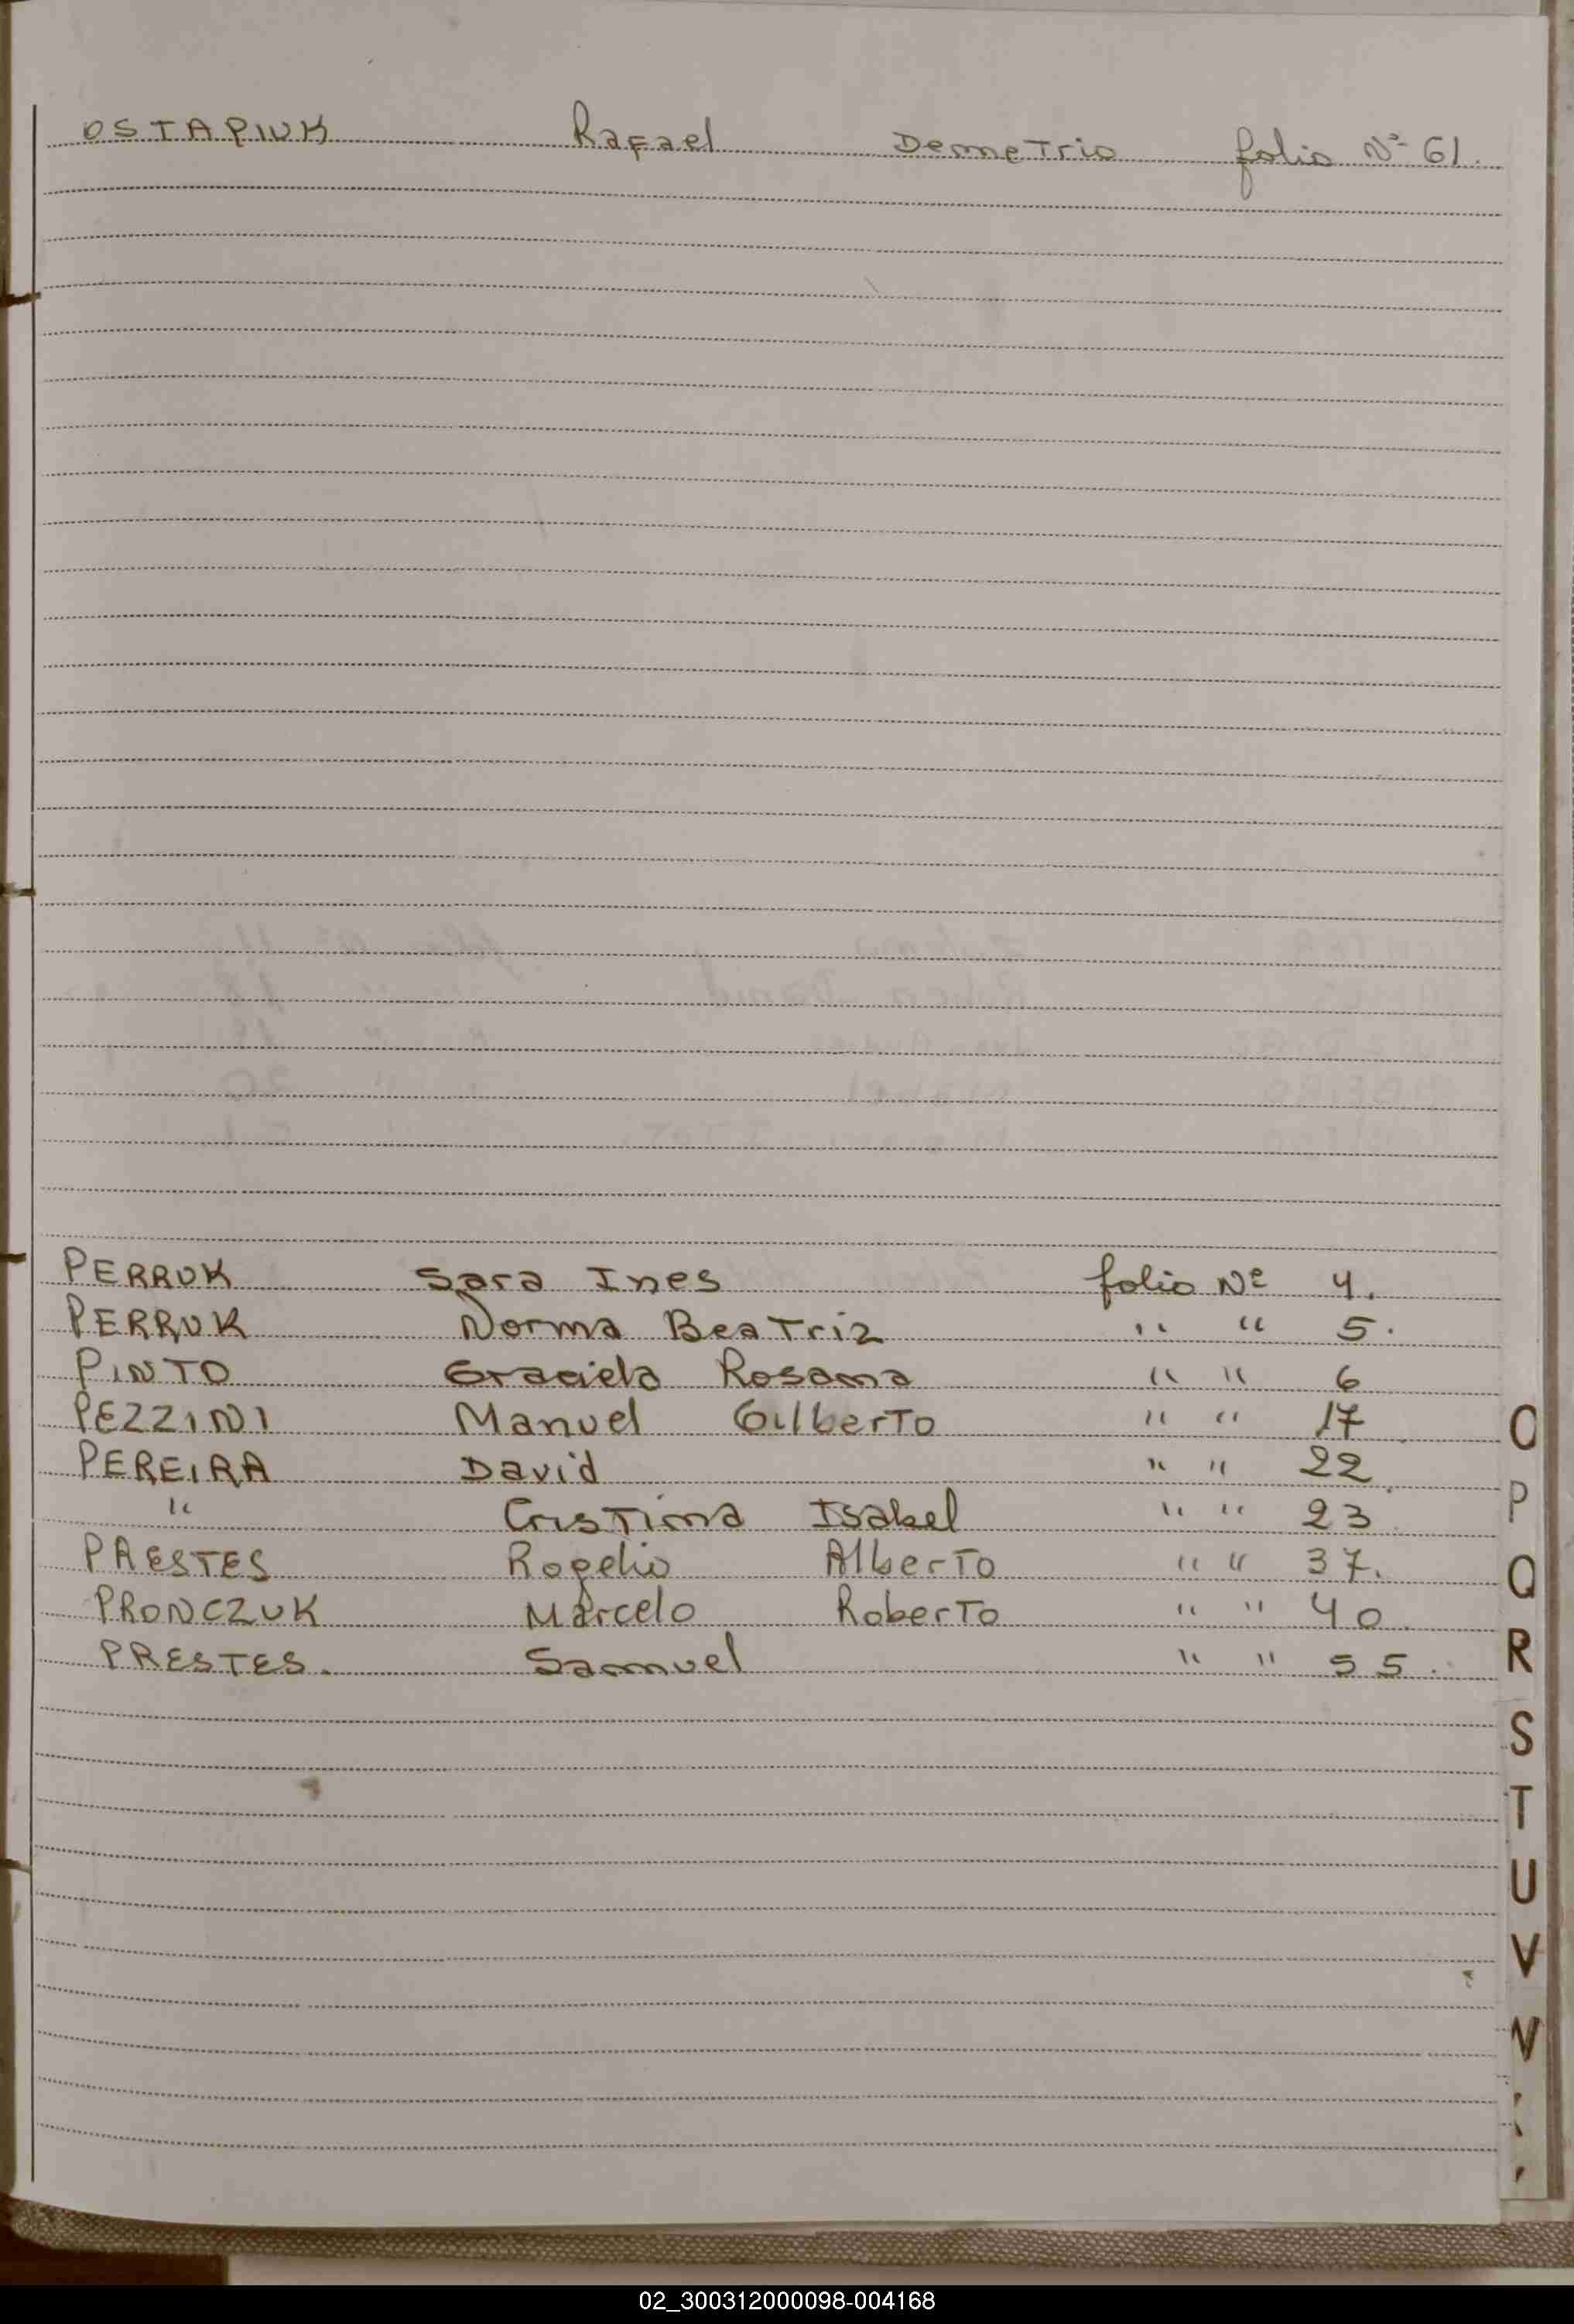 OSTAPIUK Rafael Demetrio folio Nº 61.
PERRUK Sara Ines folio Nº 4.
PERRUK Norma Beatriz " " 5.
PINTO Graciela Rosana " " 6
PEZZINI Manuel Gilberto " " 17
PEREIRA David " " 22
" Cristina Isabel " " 23
PRESTES Rogelio Alberto " " 37.
PRONCZUK Marcelo Roberto " " 40.
PRESTES. Samuel " " 55.
O
P
Q
R
S
T
U
V
02_300312000098-004168